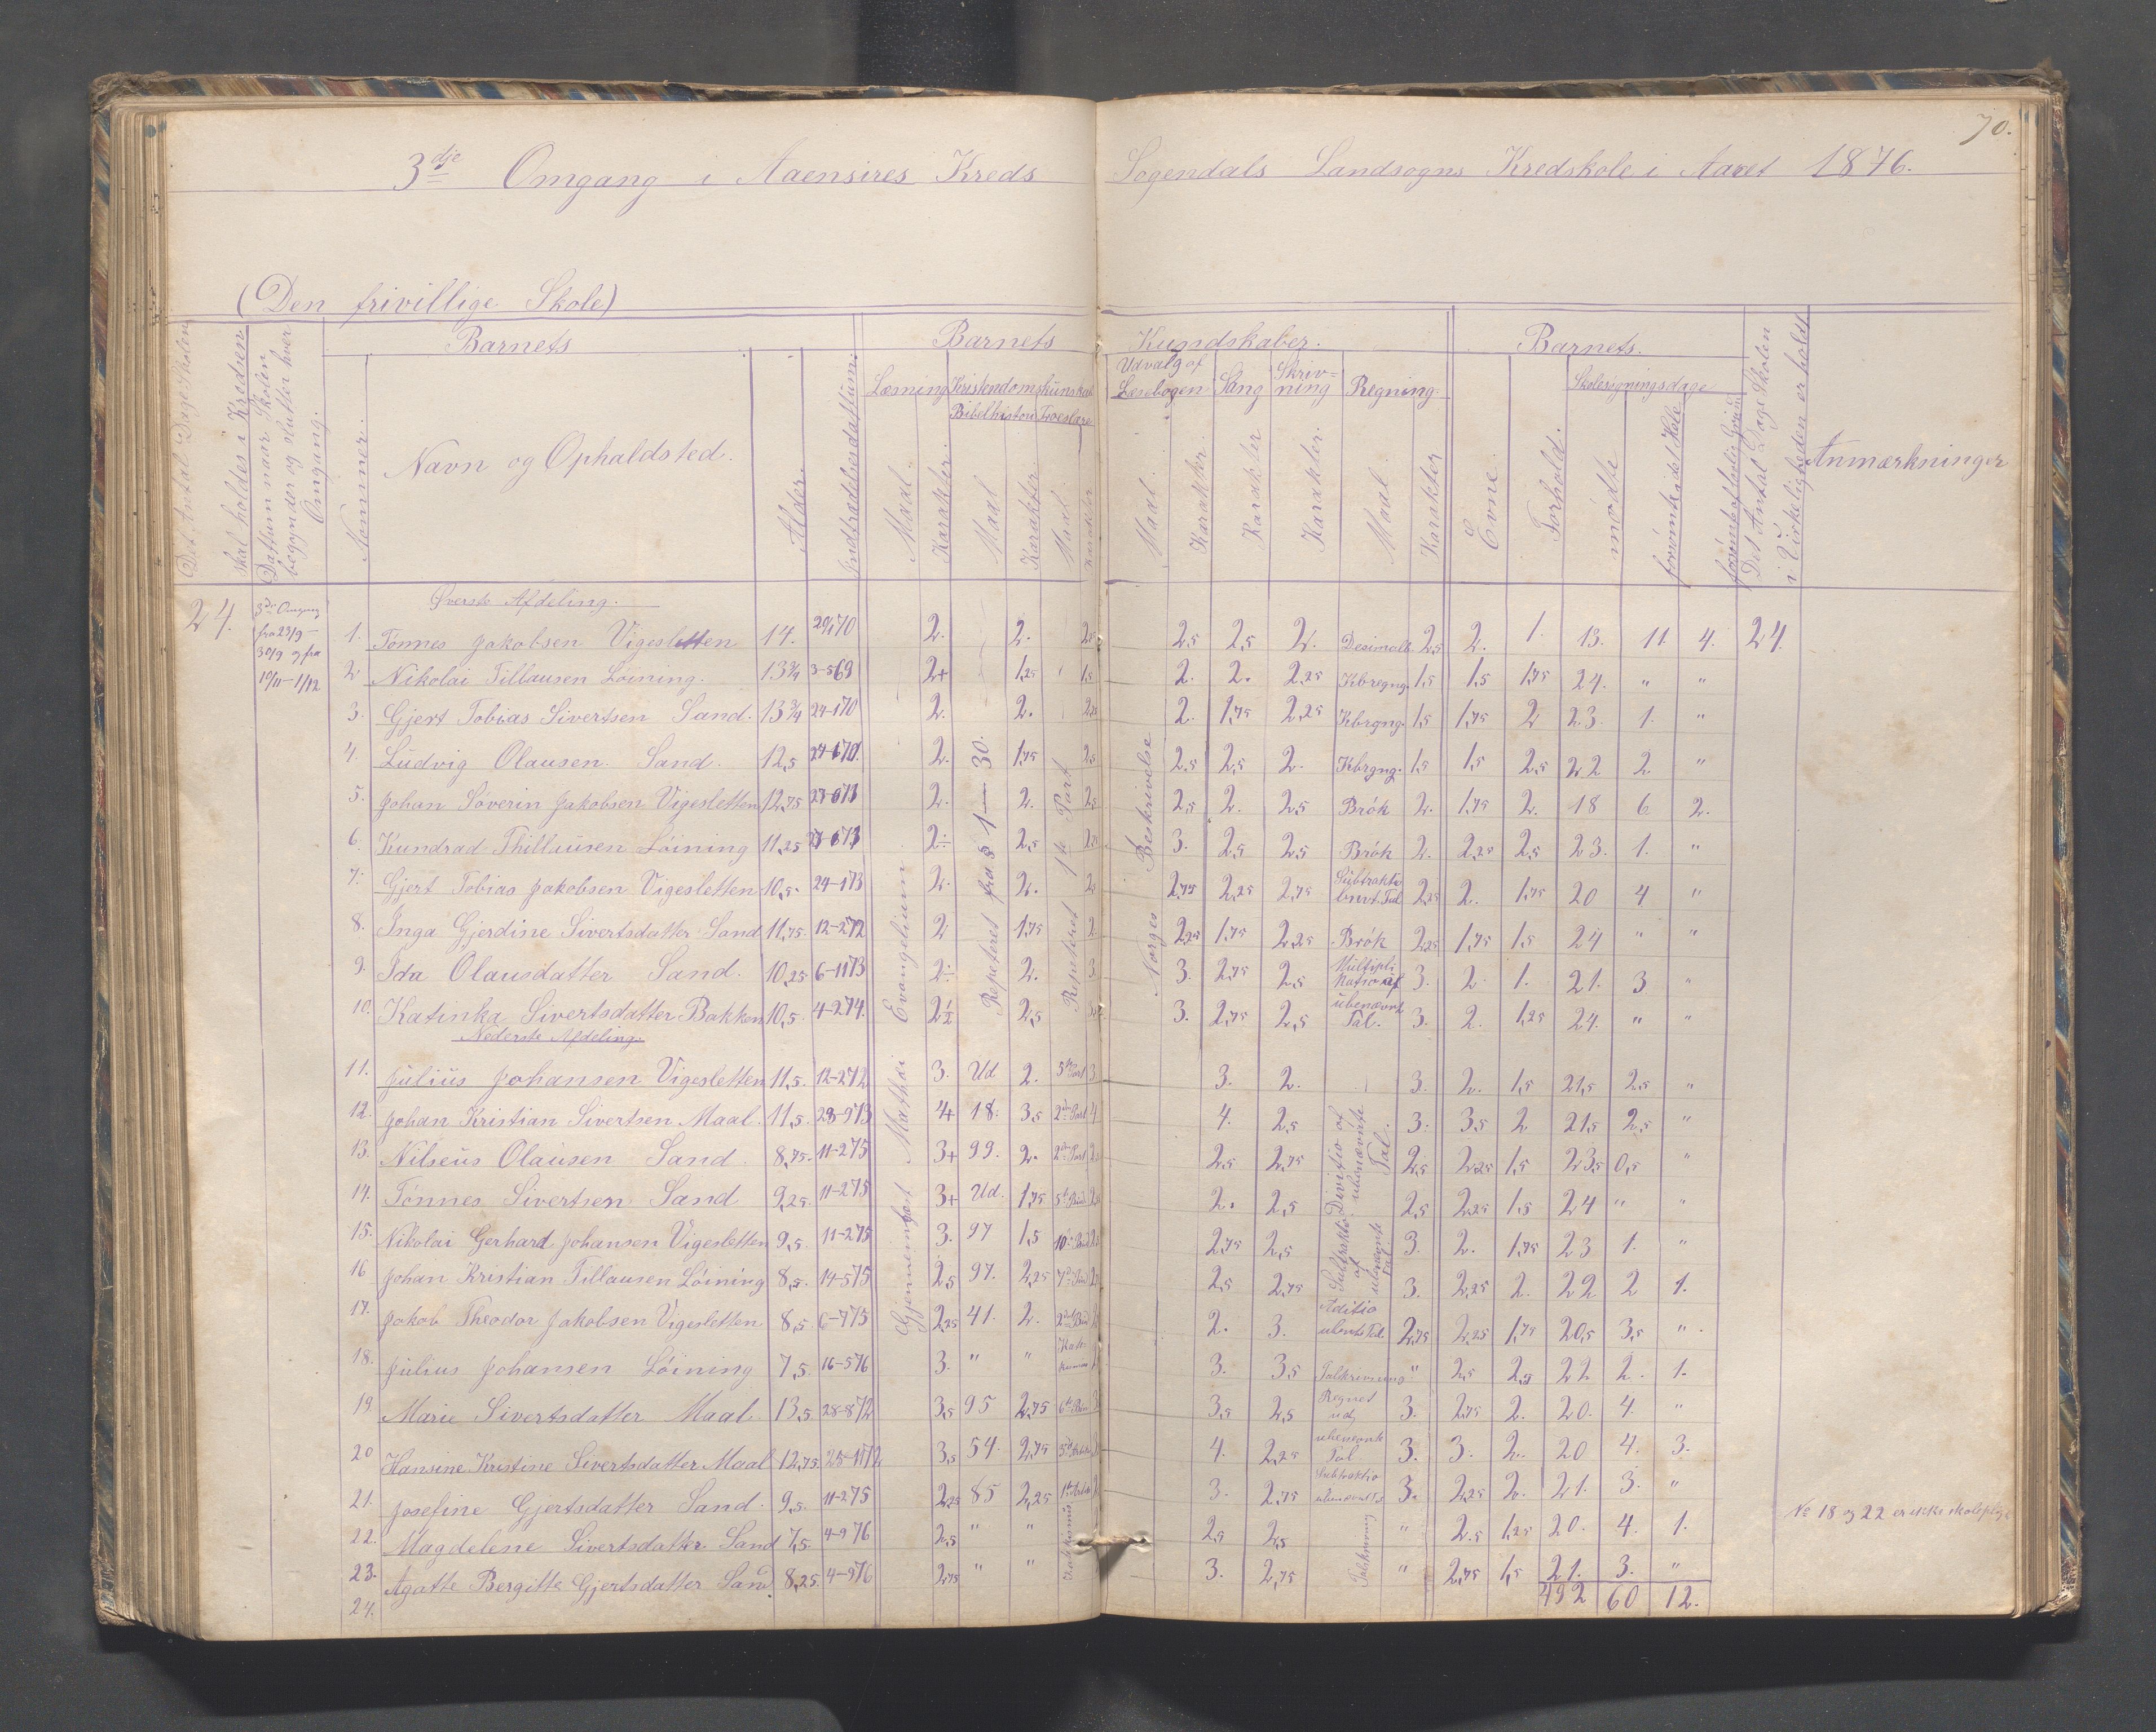 70.
3dje Omgang i Aaensires Kreds Sogendals Landsogns Kredskole i Aaret 1876.
(Den frivillige Skole)
Det Antal Dage Skolen skal holdes i Kredsen.
Dattum naar Skolen begynder og slutter hver Omgang.
Barnets
Nommer.
Navn og Opholdsted.
Alder.
Indtrædelsesdattum.
Barnets Kundskaber.
Læsning
Maal. Karakter.
Kristendomskundskab
Bibelhistorie Troeslære
Maal Karakter. Maal. Karakter
Udvalg af Læsebogen
Maal. Karakter.
Sang
Karakter
Skrivning
Karakter.
Regning.
Maal Karakter
Barnets.
Evne. Forhold.
Skolesøgningsdage
mødte
forsømt i det Hele
Det Antal Dage Skolen i Virkeligheden er holdt.
Anmærkninger
24. 3die Omgang fra 23/9 – 30/9 og fra 10/11 – 1/12
Øverste Afdeling.
1. Tønnes Jakobsen Vigesletten 14. 2. 2. 2,5 2,5 2,5 2. 2,5 2. 1. 13. 11. 4. 24.
2 Nikolai Tillausen Løining. 13 3/4 3-5 69 2+ 1,25 1,5 2. 2. 2,25 Kbregng. 1,5 1,5 1,75 24. " "
3. Gjert Tobias Sivertsen Sand. 13 3/4 24-1 70 2. 2. 2,25 2. 1,75 2,25 Kbrgng. 1,5 1,75 2 23. 1. "
4. Ludvig Olausen. Sand. 12,5 24-6 70. 2. 1,75 2,5 2,5 2,5 2. Kbrgng. 1,5 1,5 2,5 22 2 "
5. Johan Søverin Jakobsen Vigesletten 12,75 2. 2. 2,5 2,5 2. 2,5 Brøk 2. 1,75 2. 18 6 2.
6. Kundrad Thillausen Løining 11,25 2÷ 2,5 3. 2,5 2,5 Brøk 2. 2,25 2,5 23. 1. "
7. Gjert Tobias Jakobsen Vigesletten 10,5. 24-1 73 2. 2. 2 2,75 2,25 2,75 Subtraktio bnvt. Tal 2,25 2. 1,75 20 4 "
8. Inga Gjerdine Sivertsdatter Sand 11,75. 12-2 72 2 1,75 2 2,25 1,75 2,25 Brøk 2,25 1,75 1,5 24 " "
9. Ida Olausdatter Sand. 10,25 6-11 73 2÷ 2. 3. 3. 2,75 2,5 Multiplikatio af 3. 2 1. 21. 3 "
10. Katinka Sivertsdatter Bakken 10,5. 4-2 74. 2 1/2 2,5 3. 2,75 2,5 ubenævnt Tal. 3. 2. 1,25 24. " "
Evangelium
Repeteret fra § 1 — 30.
Repeteret 1te Part
Norges Beskrivelse
Nederste Afdeling.
11. Julius Johansen Vigesletten 11,5. 12-2 72 3. Ud 2. 5te Part 3 3. 2. 3. 2. 1,5 21,5 2,5 "
12. Johan Kristian Sivertsen Maal. 11,5. 28-9 73 4+ 18. 3,5 2den Part 4 4. 2,5 3. 3,5 2 21,5 2,5 "
13. Nilseus Olausen Sand. 8,75. 11-2 75 3+ 99. 2. 2den Part 2,5 2,75 2,5 2,25 1,5 23,5 0,5 "
14. Tønnes Sivertsen Sand 9,25. 11-2 75 3+ Ud. 1,75 2. 2,5 2,5 2,25 1,5 24 " "
15. Nikolai Gerhard Johansen Vigesletten 9,5. 11-2 75 3. 97 1,5 2,75 2,5 3. 2. 1,75 23 1. "
16 Johan Kristian Tillausen Løining 8,5. 14-5 75 2,5 97. 2,25 2,5 2,75 3. 2,25 2. 22 2 1.
17. Jakob Theodor Jakobsen Vigesletten 8,5. 6-7 75 2,25 41. 2. 2. 3. Aditio 2,75 2,25 1,75 20,5 3,5 "
18. Julius Johansen Løining 7,5. 16-5 76 3. " " 3. 3,5 Talskrivning " 2,5 2,5 22 2. 1.
19 Marie Sivertsdatter Maal. 13,5. 28-8 72 3,5 95 2,75 3,5 2,5 Regnet 3. 2,75 2. 20. 4. "
20 Hansine Kristine Sivertsdatter Maal 12,75. 25-11 72 3,5 54. 2,75 4. 2,25 ubenævnte Tal 3. 3. 2. 20 4. 3.
21. Josefine Gjertsdatter Sand. 9,5. 11-2 75 2,25 85 2,25 3. 2,75 Subtraktio 3. 2,25 2. 21. 3. "
22. Magdelene Sivertsdatter Sand 7,5. 4-9 76 2,5 " " 2,5 2,5 " 2,5 1,25 20. 4. 1.
23. Agatte Bergitte Gjertsdatter Sand. 8,25. 4-9 76 2,75 " " 3. 2,75 " 2,75 1,5 21. 3. "
24. 492 60 12.
Gjennemgaat Matthæi
Divisio af ubenævnte Tal.
Subtraktio af ubenævnte Tal
No 18 og 22 er ikke skolepligt